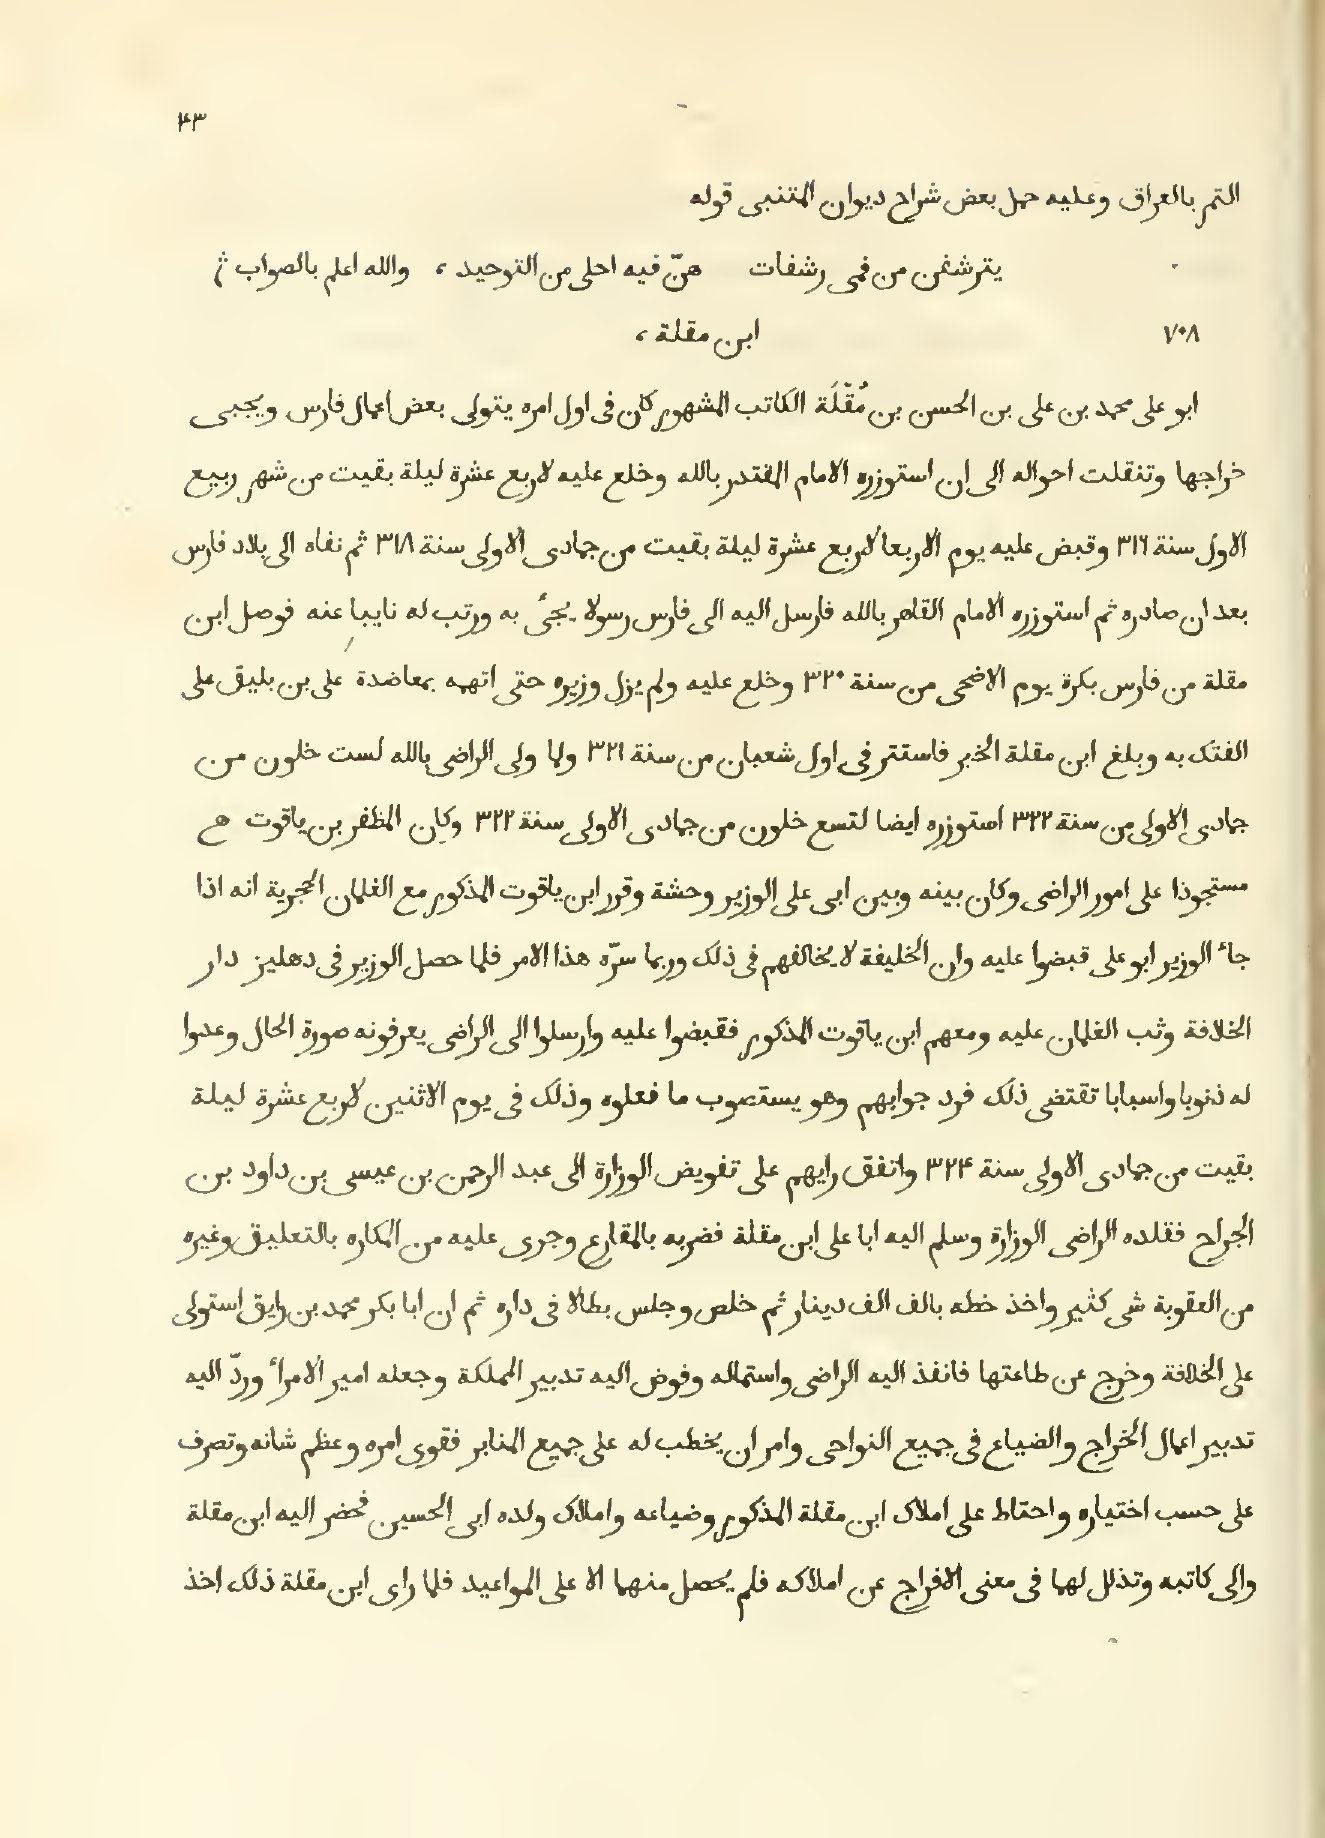 ٤٣
التمر بالعراق وعليه حمل بعض شراح ديوان المتنبى قوله
يترشفن من فمى رشفات هنّ فيه احلى من التوحيد ، والله اعلم بالصواب
٧٠٨ ابن مقلة ،
ابو على محمد بن على بن الحسن بن مُقْلَة الكاتب المشهور كان فى اول امره يتولى بعض اعمال فارس ويجبى
خراجها وتنقلت احواله الى ان استوزره الامام المقتدر بالله وخلع عليه لاربع عشرة ليلة بقيت من شهر ربيع
الاول سنة ٣١٦ وقبض عليه يوم الاربعا لاربع عشرة ليلة بقيت من جمادى الاولى سنة ٣١٨ ثم نفاه الى بلاد فارس
بعد ان صادره ثم استوزره الامام القاهر بالله فارسل اليه الى فارس رسولا يجىُ به ورتب له نايبا عنه فوصل ابن
مقلة من فارس بكرة يوم الاضحى من سنة ٣٢٠ وخلع عليه ولم يزل وزيره حتى اتهمه بمعاضدة على بن بليق على
الفتك به وبلغ ابن مقلة الخبر فاستتر فى اول شعبان من سنة ٣٢١ ولما ولى الراضى بالله لست خلون من
جمادى الاولى من سنة ٣٢٢ استوزره ايضا لتسع خلون من جمادى الاولى سنة ٣٢٢ وكان المظفر بن ياقوت
مستحوذا على امور الراضى وكان بينه وبين ابى على الوزير وحشة وقرر ابن ياقوت المذكور مع الغلمان الحجرية انه اذا
جاُ الوزير ابو على قبضوا عليه وان الخليفة لا يخالفهم فى ذلك وربما سرّه هذا الامر فلما حصل الوزير فى دهليز دار
الخلافة وثب الغلمان عليه ومعهم ابن ياقوت المذكور فقبضوا عليه وارسلوا الى الراضى يعرفونه صورة الحال وعدوا
له ذنوبا واسبابا تقتضى ذلك فرد جوابهم وهو يستصوب ما فعلوه وذلك فى يوم الاثنين لاربع عشرة ليلة
بقيت من جمادى الاولى سنة ٣٢٤ واتفق رايهم على تفويض الوزارة الى عبد الرحمن بن عيسى بن داود بن
الجراح فقلده الراضى الوزارة وسلم اليه ابا على ابن مقلة فضربه بالمقارع وجرى عليه من المكاره بالتعليق وغيره
من العقوبة شى كثير واخذ خطه بالف الف دينار ثم خلص وجلس بطالا فى داره ثم ان ابا بكر محمد بن رايق استولى
على الخلافة وخرج عن طاعتها فانفذ اليه الراضى واستماله وفوض اليه تدبير المملكة وجعله امير الامراُ وردّ اليه
تدبير اعمال الخراج والضياع فى جميع النواحى وامر ان يخطب له على جميع المنابر فقوى امره وعظم شانه وتصرف
على حسب اختياره واحتاط على املاك ابن مقلة المذكور وضياعه واملاك ولده ابى الحسين فحضر اليه ابن مقلة
والى كاتبه وتذلل لهما فى معنى الافراج عن املاكه فلم يحصل منهما الا على المواعيد فلما راى ابن مقلة ذلك اخذ